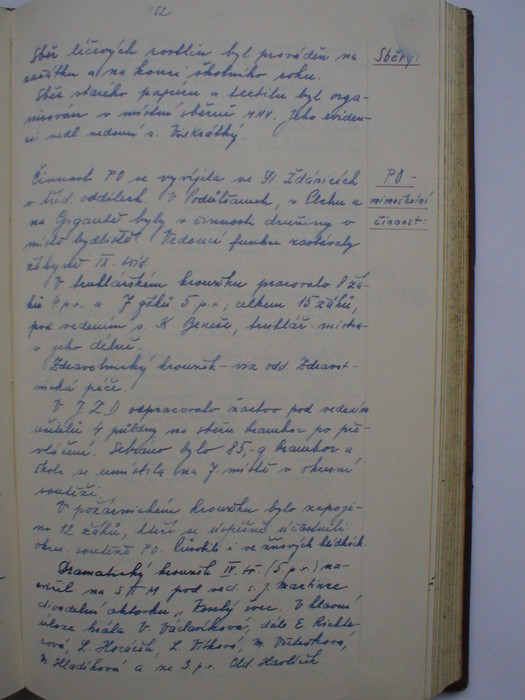 162
Sběr léčivých rostlin byl prováděn na
začátku a na konci školního roku.
Sběr starého papíru a textilu byl orga-
nisován v místní sběrně MNV. Jeho eviden-
ci vedl vedoucí s. Voskrátký.
Sběry:
Činnost PO se vyvíjela ve St. Ždánicích
v třech oddílech. V Podůlšanech, v Plchu a
na Gigantě byly v činnosti družiny v
místě bydliště. Vedoucí funkce zastávaly
žákyně IX. tříd.
PO -
mimoškolní
činnost:
V truhlářském kroužku pracovalo 8 žá-
ků 4. p.r. a 7 žáků 5. p.r., celkem 15 žáků,
pod vedením s. K. Beneše, truhlář. mistra
v jeho dílně.
Zdravotnický kroužek - viz odd. Zdravot-
nická péče.
V JZD odpracovalo žactvo pod vedením
učitelů 4 půldny na sběru brambor po pře-
vláčení. Sebráno bylo 85,-q brambor a
škola se umístila na 7. místě v okresní
soutěži.
V požárnickém kroužku bylo zapoje-
no 12 žáků, kteří se úspěšně účastnili
okres. soutěže PO. Působili i ve žňových hlídkách.
Dramatický kroužek IV. tř. (5. p.r.) na-
cvičil na STM pod ved. s. J. Martince
divadelní aktovku „Veselý švec. V hlavní
úloze hrála V. Václavíková, dále E. Richte-
rová, L. Horáček, L. Vítková, M.
M. Hladíková a ze 3. p.r. Old. Havlíček.